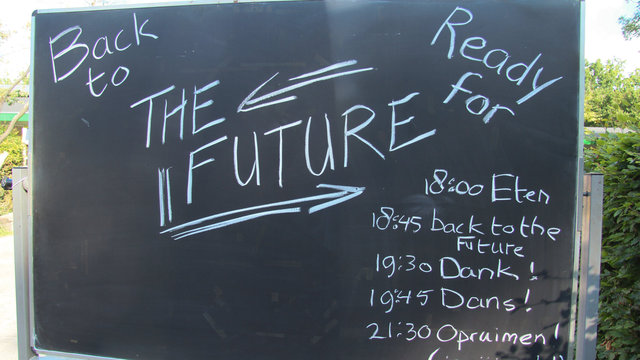 Back
to
THE
FUTURE
Ready
for
18:00 Eten
18:45 back to the
Future
19:30 Dank!
19:45 Dans!
21:30 Opruimen!